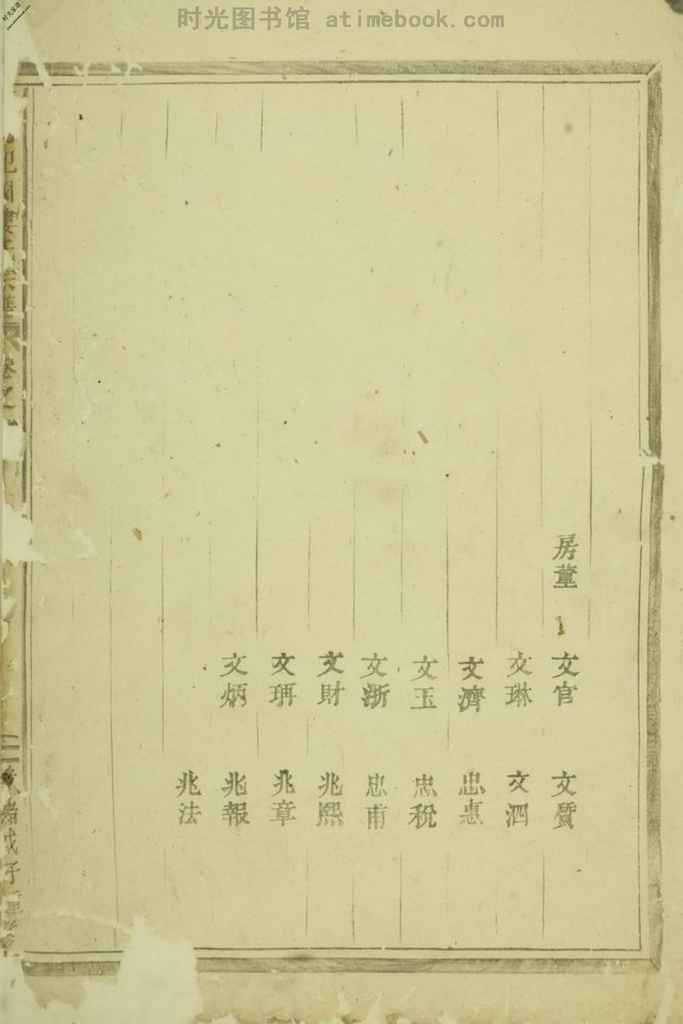 时光图书馆 atimebook.com
房董
文官 文質
文琳 文泗
文濟 忠惠
文玉 忠稅
文浙 忠甫
文財 兆熙
文 兆章
文炳 兆報
兆法
卷之
戊子